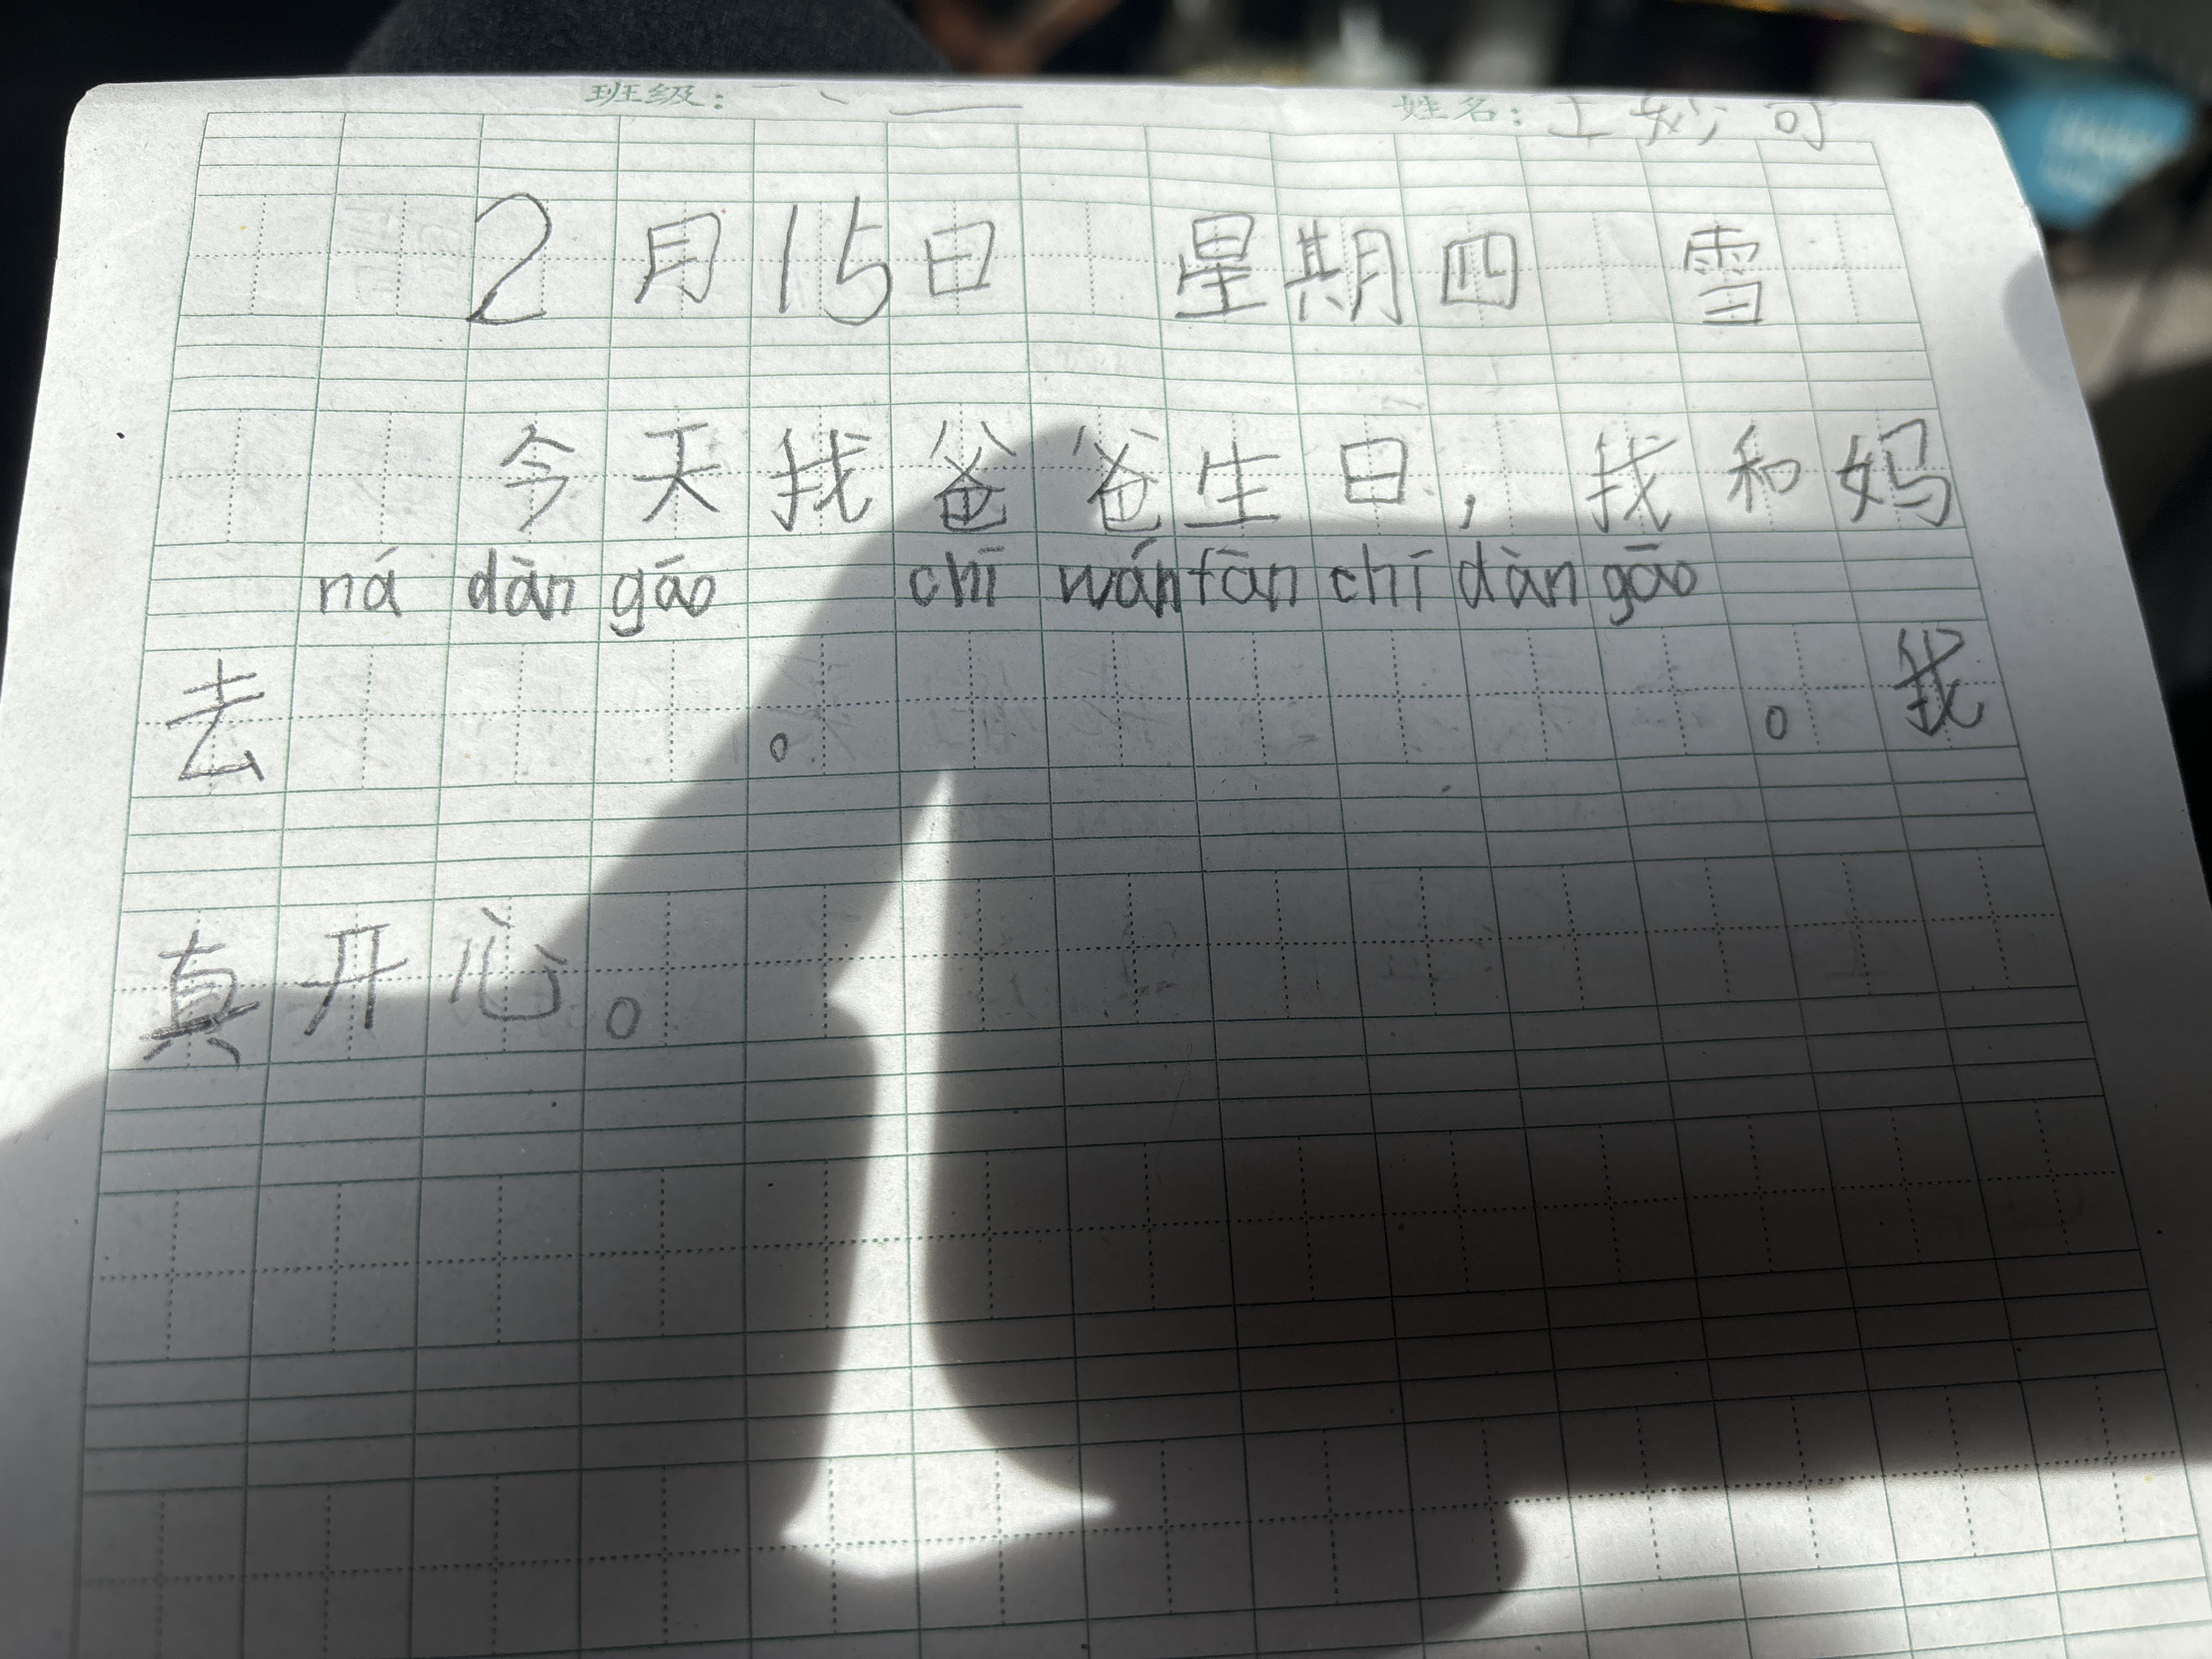 班级: 一、二 姓名: 王妙可
2月15日 星期四 雪
今天我爸爸生日,我和妈
ná dàn gāo chī wán fàn chī dàn gāo
去 。 。我
真开心。